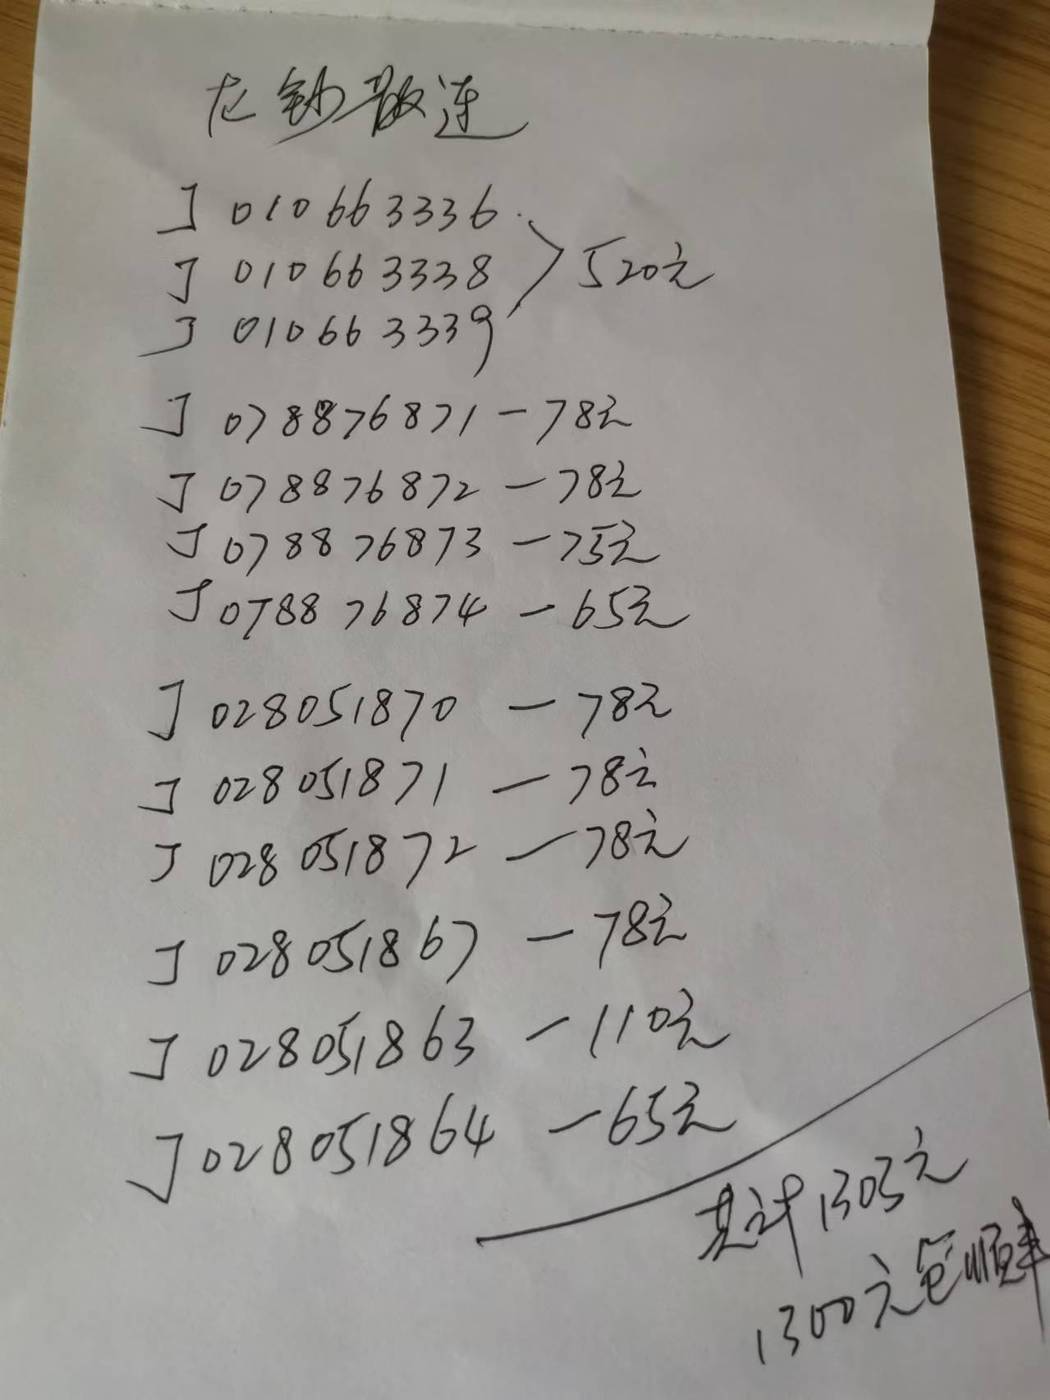 龙钞散连
J010663336
J010663338 > 520元
J010663339
J078876871－78元
J078876872－78元
J078876873－75元
J078876874－65元
J028051870－78元
J028051871－78元
J028051872－78元
J028051867－78元
J028051863－110元
J028051864－65元
共计1303元
1300元包顺丰